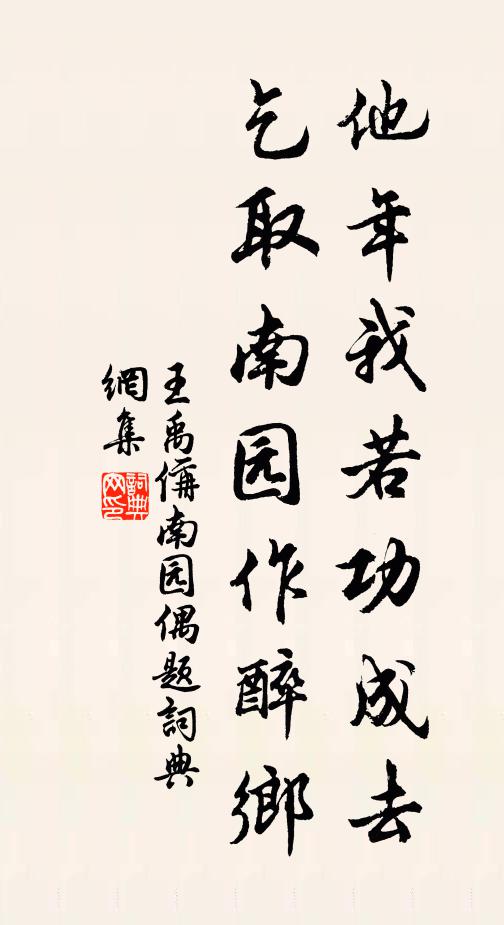 他年我若功成去
乞取南园作醉鄉
王禹偁南园偶题詞典
網集
詞典
网印